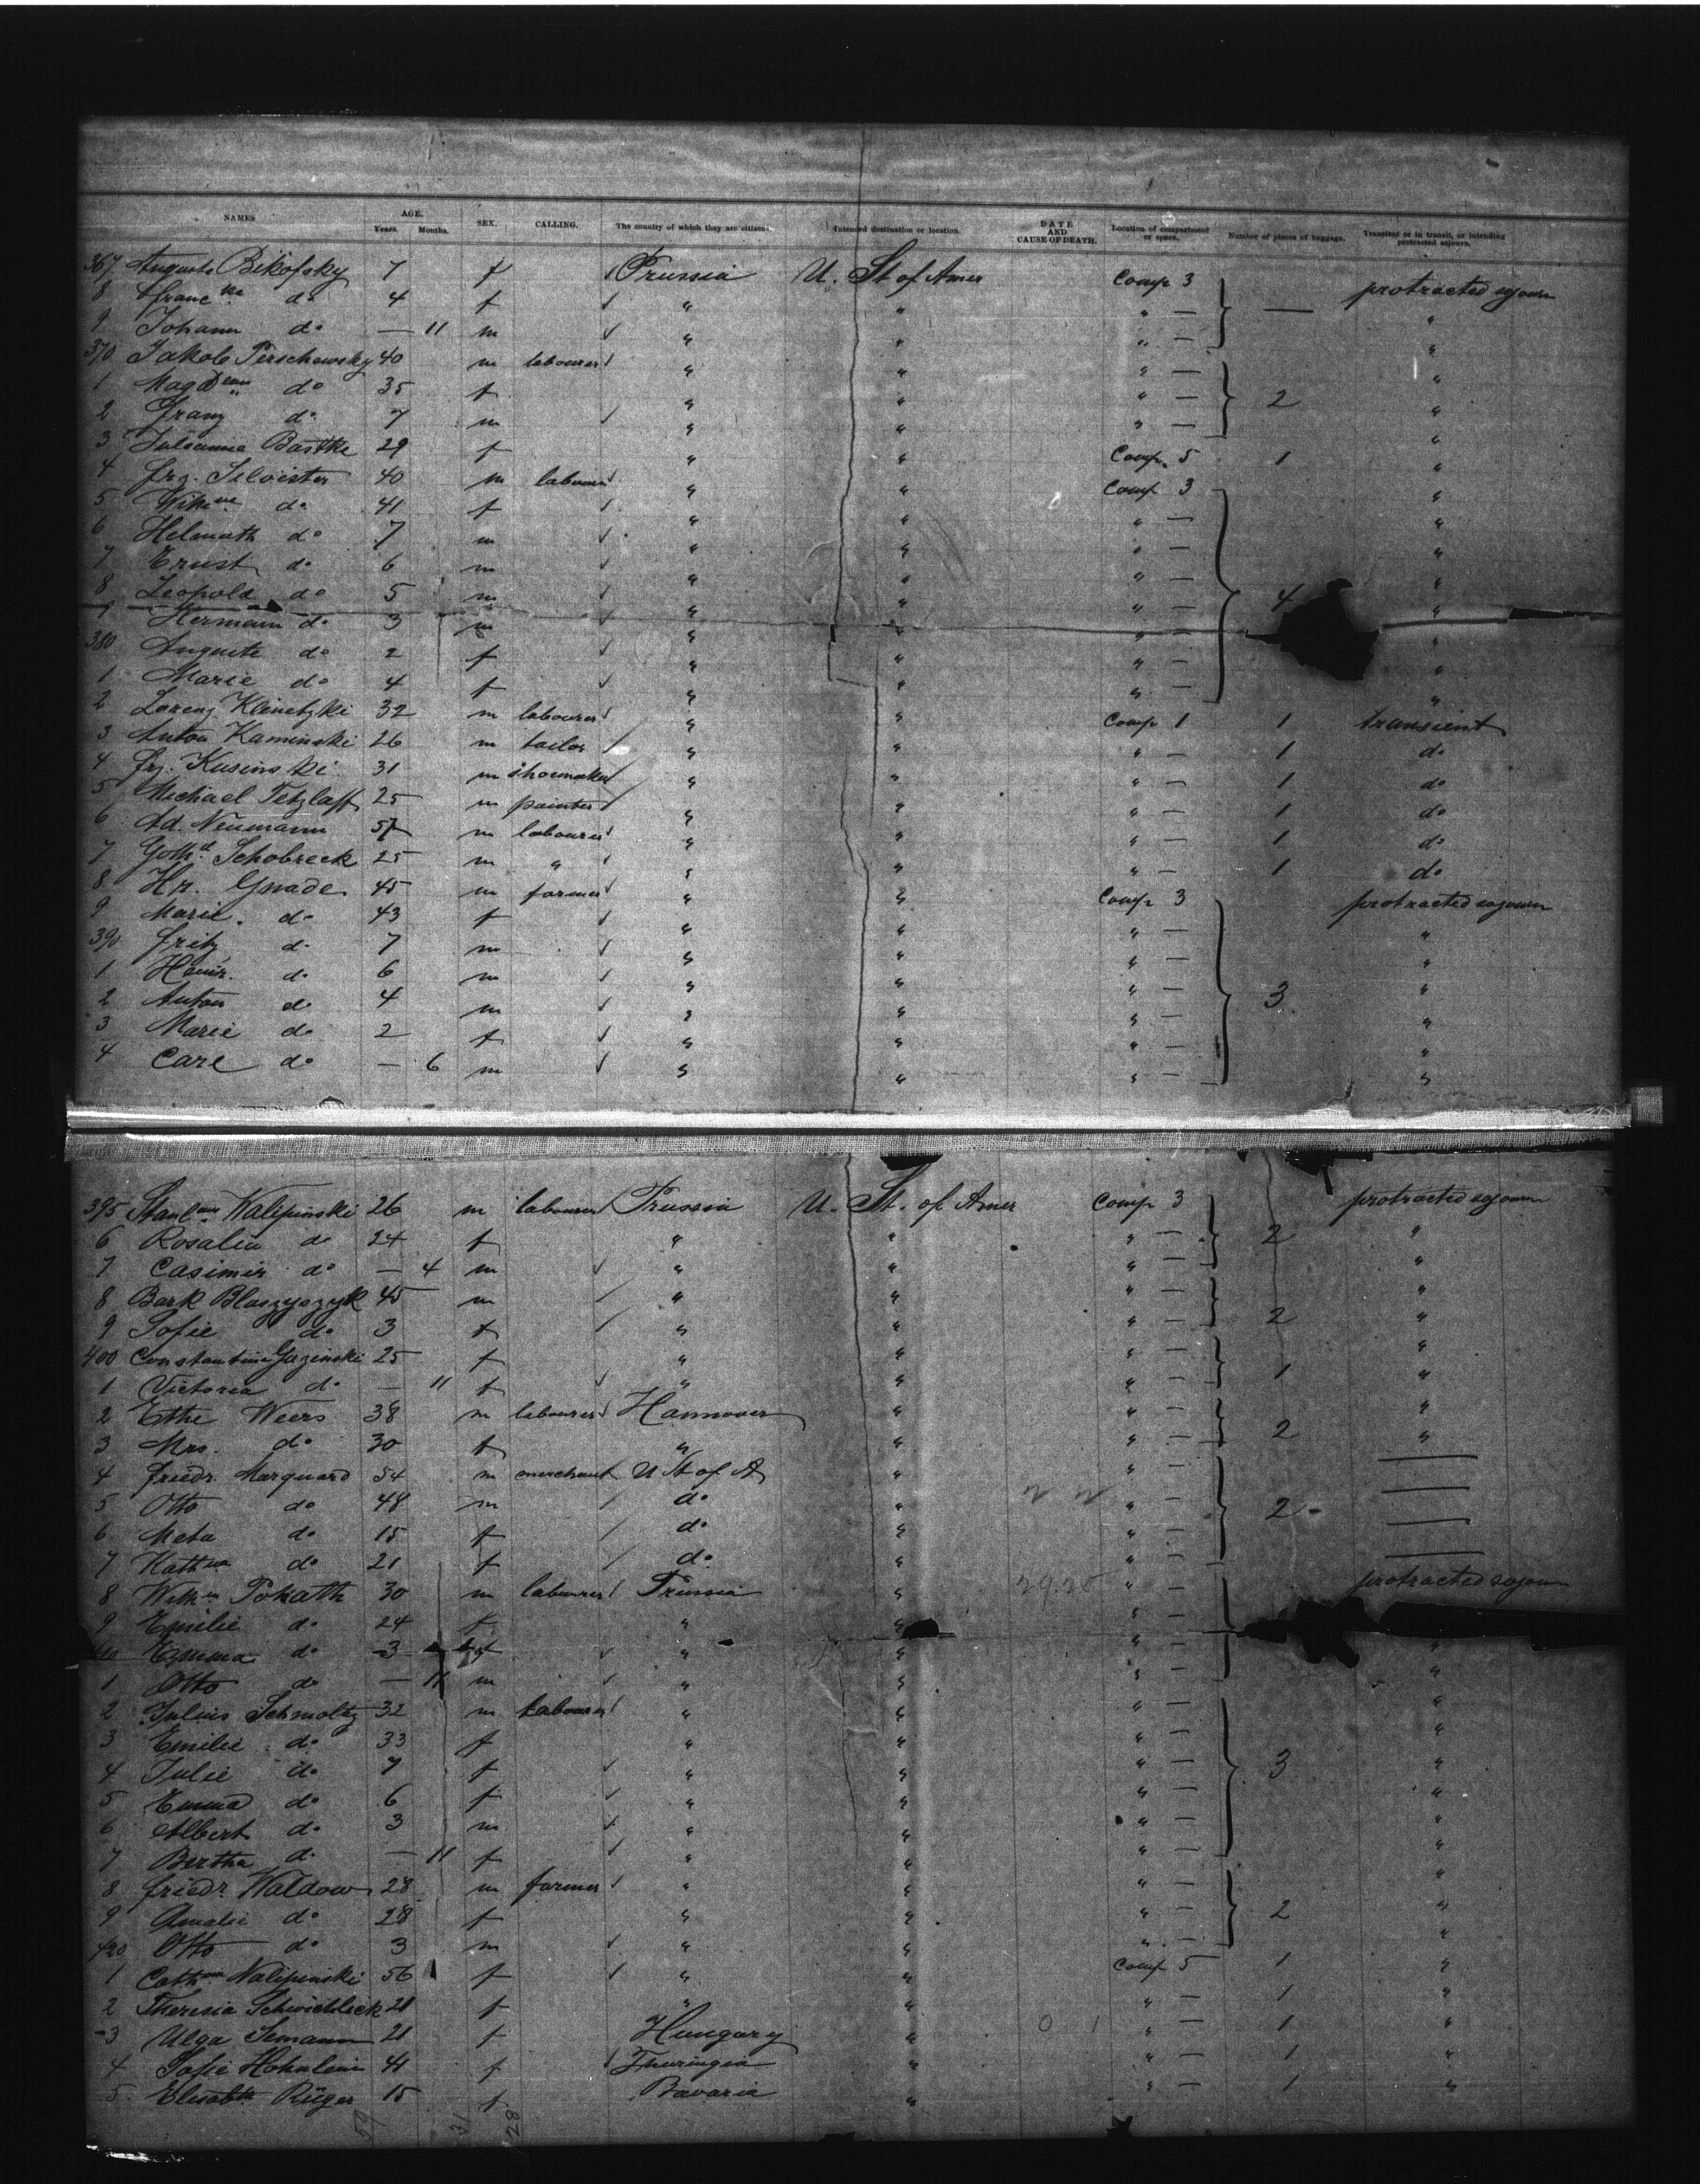 NAMES AGE. Years. Months. SEX. CALLING. The country of which they are citizens. Intended destination or location. DATE AND CAUSE OF DEATH. Location of compartment or space. Number of pieces of baggage. Transient or in transit, or intending protracted sojourn.
367 Auguste Bikofsky 7 f Prussia U. St of Amer Comp 3 — protracted sojourn
8 Franc^ne do 4 f " " " — "
9 Johann do — 11 m " " " — "
370 Jakob Perschewsky 40 m labourer " " " — "
1 Magdlena do 35 f " " " — 2 "
2 Franz do 7 m " " " — "
3 Julianna Bastke 29 f " " Comp. 5 1 "
4 Frz. Silvester 40 m labourer " " Comp 3 "
5 Wilh^ne do 41 f " " " — "
6 Helmuth do 7 m " " " — "
7 Ernst do 6 m " " " — "
8 Leopold do 5 m " " " — 4 "
9 Hermann do 3 m " " " — "
380 Auguste do 2 f " " " — "
1 Marie do 4 f " " " — "
2 Lorenz Klinetzki 32 m labourer " " Comp 1 1 transient
3 Anton Kaminski 26 m tailor " " " — 1 do
4 Frz. Kusinski 31 m shoemaker " " " — 1 do
5 Michael Tetzlaff 25 m painter " " " — 1 do
6 Ad. Neumann 57 m labourer " " " — 1 do
7 Goth^d Schobreck 25 m " " " " — 1 do
8 Hr. Gnade 45 m farmer " " Comp 3 protracted sojourn
9 Marie do 43 f " " " — "
390 Fritz do 7 m " " " — "
1 Heinr. do 6 m " " " — "
2 Anton do 4 m " " " — 3 "
3 Marie do 2 f " " " — "
4 Carl do — 6 m " " " — "
395 Stanl^aus Walipinski 26 m labourer Prussia U. St. of Amer Comp 3 protracted sojourn
6 Rosalia do 24 f " " " — 2 "
7 Casimir do — 4 m " " " — "
8 Bark Blaszyszyk 45 m " " " — "
9 Sofie do 3 f " " " — 2 "
400 Constantine Gazinski 25 f " " " — "
1 Victoria do — 11 f " " " — 1 "
2 Ethe Weers 38 m labourer Hannover " " — "
3 Mrs. do 30 f " " " — 2 "
4 Friedr. Marquard 54 m merchant U St of A " " — —
5 Otto do 48 m do " " — 2 —
6 Meta do 15 f do " " — —
7 Kath^na do 21 f do " " — —
8 Wilh^m Pokath 30 m labourer Prussia " " — protracted sojourn
9 Emilie do 24 f " " " —
410 Emma do 3 f " " " — "
1 Otto do — 11 m " " " — "
2 Julius Schmoltz 32 m labourer " " " "
3 Emilie do 33 f " " " — "
4 Julie do 7 f " " " — 3 "
5 Emma do 6 f " " " — "
6 Albert do 3 m " " " — "
7 Bertha do — 11 f " " " — "
8 Friedr. Waldow 28 m farmer " " " — "
9 Amalie do 28 f " " " — 2 "
420 Otto do 3 m " " " — "
1 Cath^na Nalipinski 56 f " " Comp 5 1 "
2 Theresia Schwichlick 21 f " " " — 1 "
3 Ulga Semann 21 f Hungary " " — 1 "
4 Sofie Hohalein 41 f Thuringia " " — 1 "
5 Elisabth Rüger 15 f Bavaria " " — 1 "
59 31 28